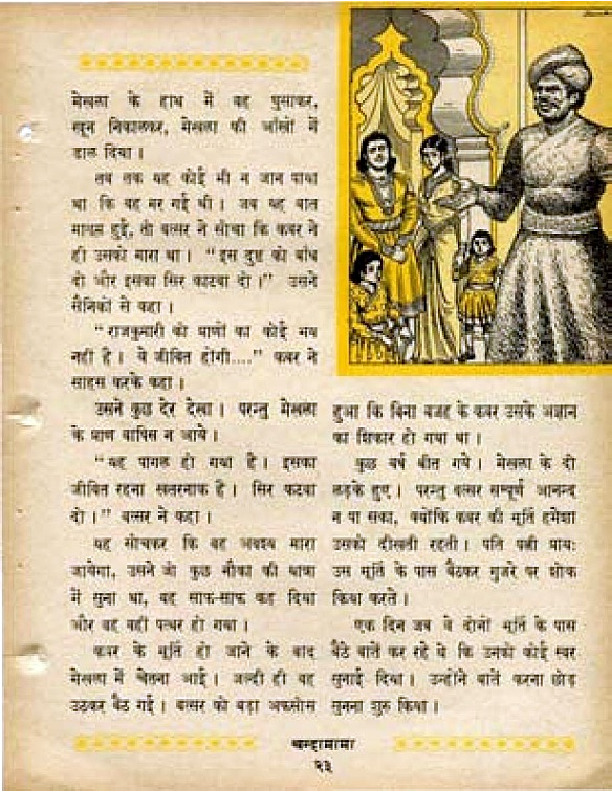 मेखला के हाथ में वह घुसाकर,
खून निकालकर, मेखला की आँखों में
डाल दिया।
तब तक यह कोई भी न जान पाया
था कि वह मर गई थी। जब यह बात
मालूम हुई, तो वत्सर ने सोचा कि कबर ने
ही उसको मारा था। "इस दुष्ट को बाँध
दो और इसका सिर काटवा दो।" उसने
सैनिकों से कहा।
"राजकुमारी को प्राणों का कोई भय
नहीं है। ये जीवित होंगी...." कबर ने
साहस करके कहा।
उसने कुछ देर देखा। परन्तु मेखला
के प्राण वापिस न आये।
"यह पागल हो गया है। इसका
जीवित रहना खतरनाक है। सिर कटवा
दो।" वत्सर ने कहा।
यह सोचकर कि वह अवश्य मारा
जायेगा, उसने जो कुछ नौका की यात्रा
में सुना था, वह साफ-साफ कह दिया
और वह वहीं पत्थर हो गया।
कबर के मूर्ति हो जाने के बाद
मेखला में चेतना आई। जल्दी ही वह
उठकर बैठ गई। वत्सर को बड़ा अफसोस
हुआ कि बिना वजह के कबर उसके अज्ञान
का शिकार हो गया था।
कुछ वर्ष बीत गये। मेखला के दो
लड़के हुए। परन्तु वत्सर सम्पूर्ण आनन्द
न पा सका, क्योंकि कबर की मूर्ति हमेशा
उसको दीखती रहती। पति पत्नी प्रायः
उस मूर्ति के पास बैठकर गुजरे पर शोक
किया करते।
एक दिन जब वे दोनों मूर्ति के पास
बैठे बातें कर रहे थे कि उनको कोई स्वर
सुनाई दिया। उन्होंने बातें करना छोड़
सुनना शुरू किया।
चन्दामामा
२३